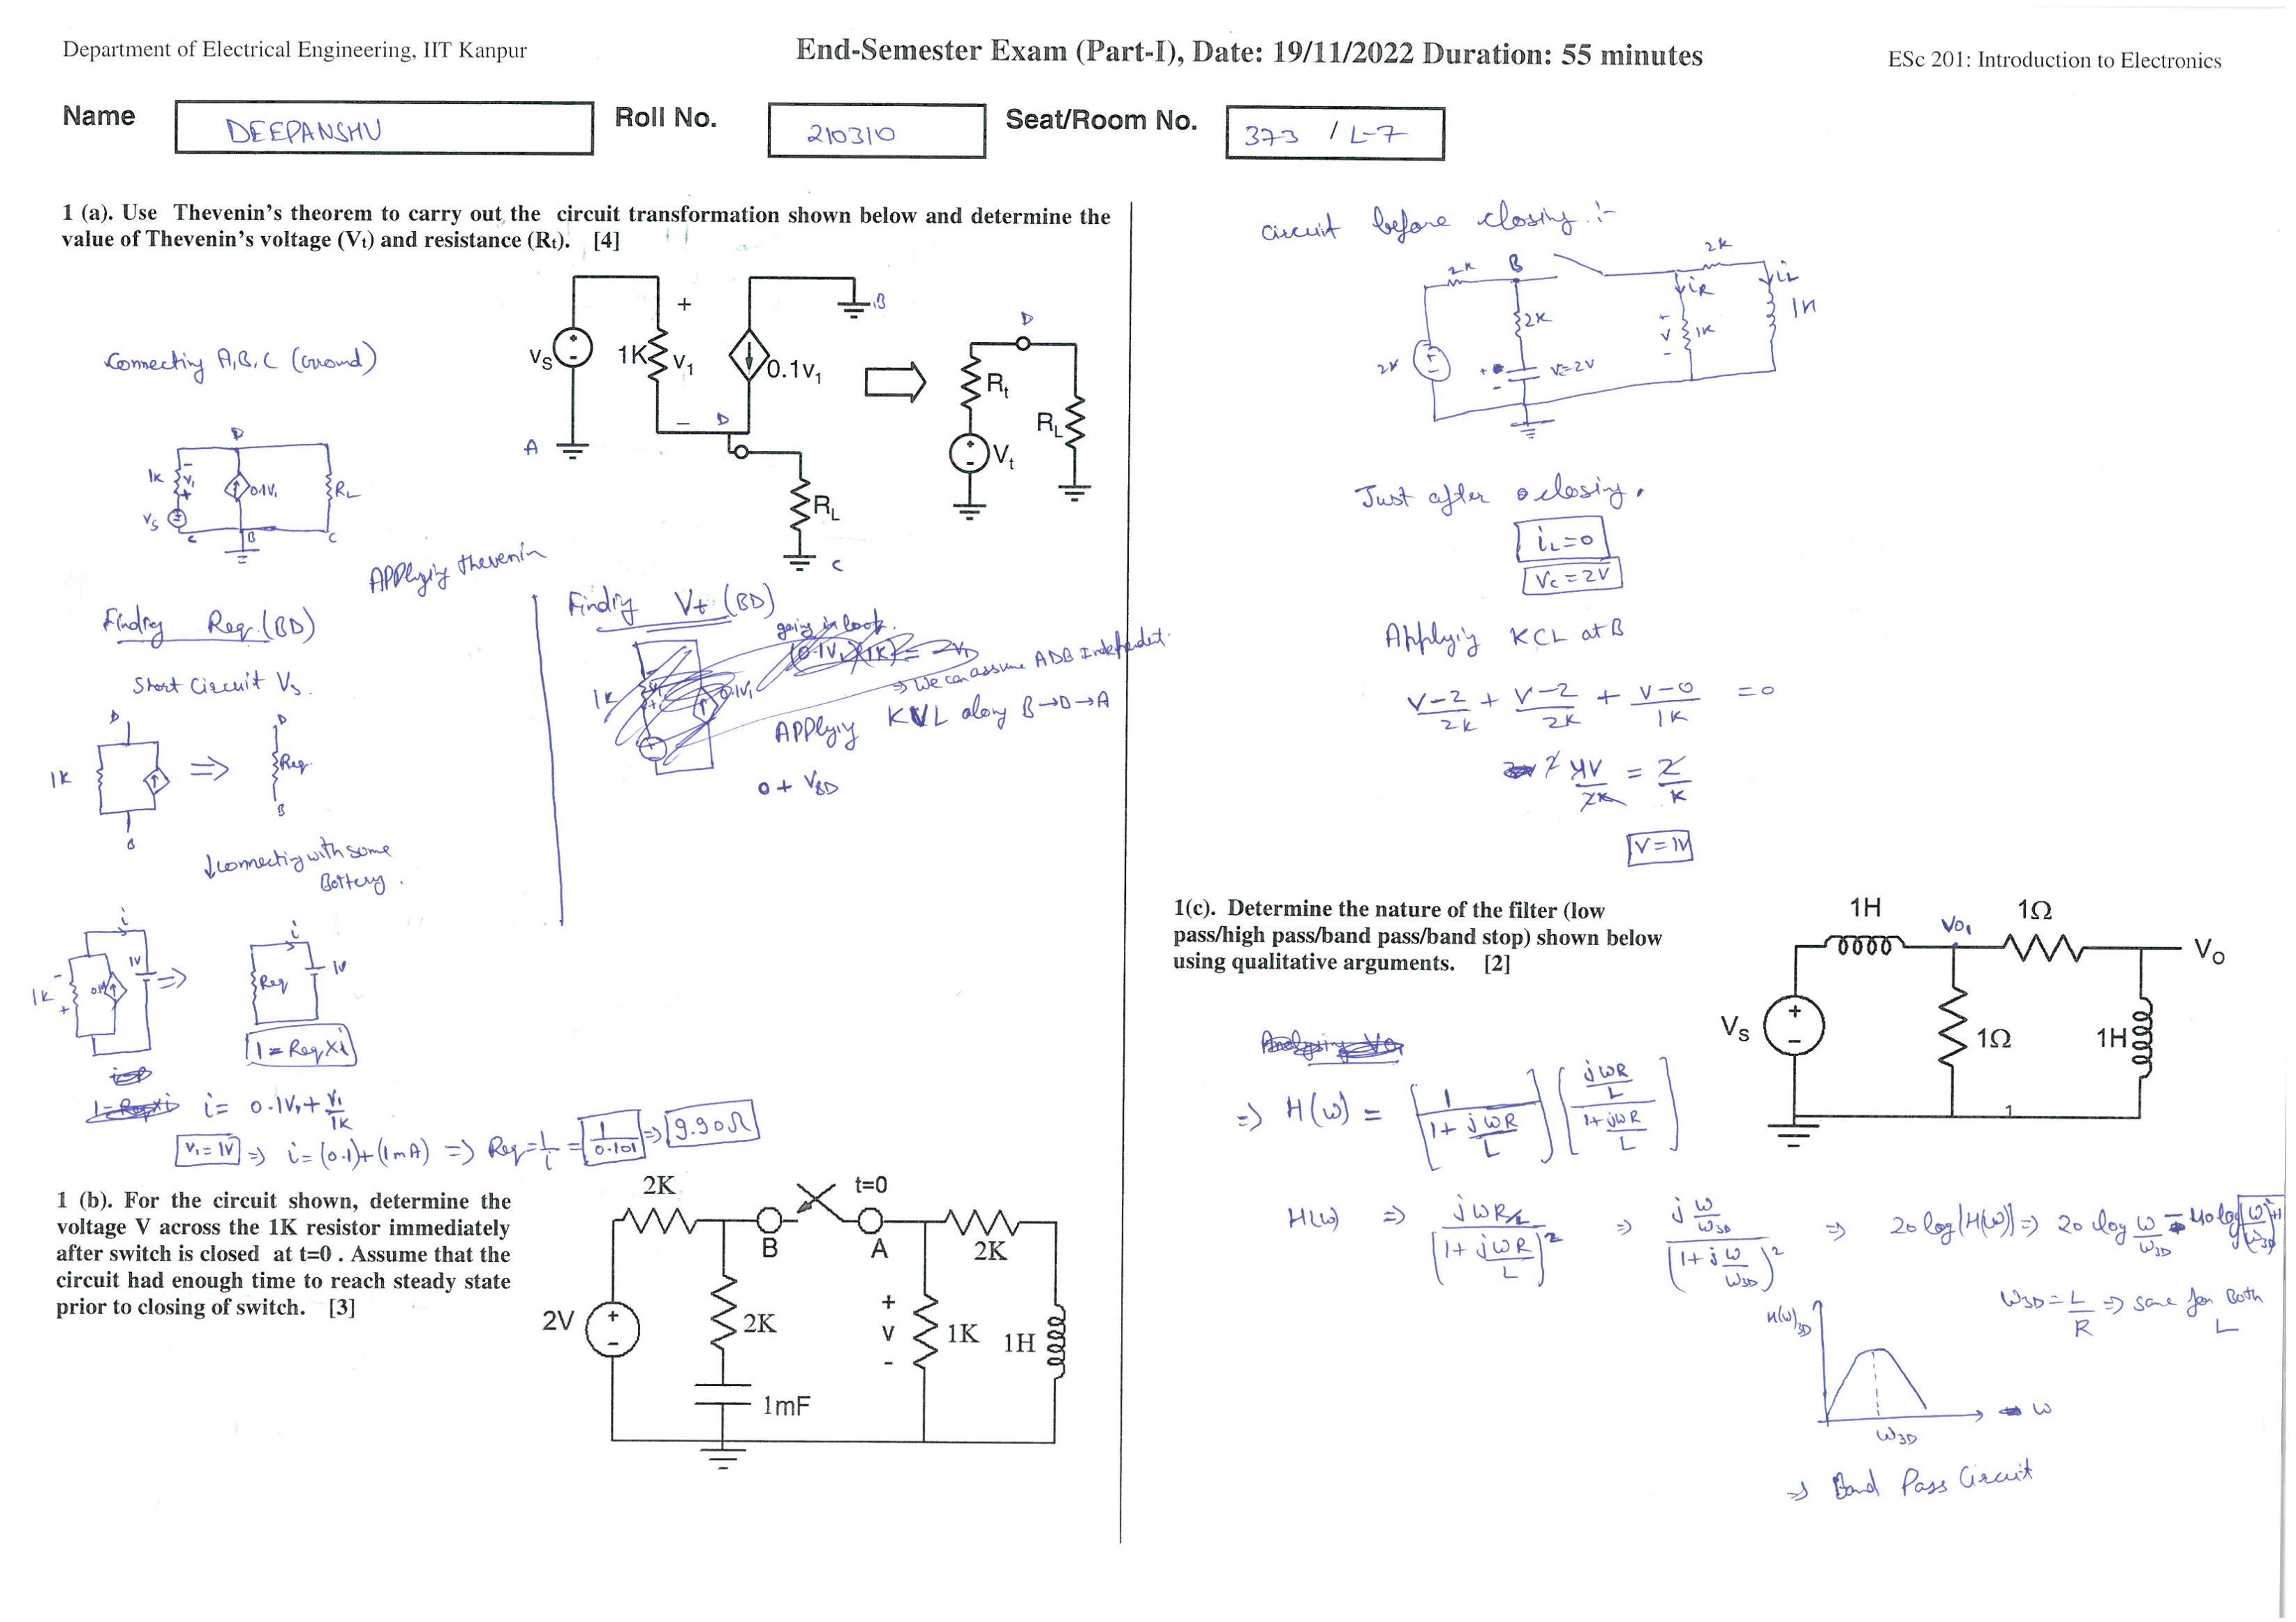 Department of Electrical Engineering, IIT Kanpur
End-Semester Exam (Part-I), Date: 19/11/2022 Duration: 55 minutes
ESc 201: Introduction to Electronics
Name
DEEPANSHU
Roll No.
210310
Seat/Room No.
373 / L-7
1 (a). Use Thevenin's theorem to carry out the circuit transformation shown below and determine the
value of Thevenin's voltage (Vt) and resistance (Rt). [4]
Connecting A, B, C (Ground)
VS
1K
+
V1
−
0.1v1
B
A
D
RL
C
D
Rt
Vt
RL
D
1K
V1
VS
0.1V1
RL
C
B
C
Applying thevenin
Finding Req. (BD)
Short Circuit Vs.
D
1K
B
⇒
D
Req.
B
↓ connecting with some
Battery.
i
1K
1V
⇒
i
Req
1V
1 = Req × i
i = 0.1V1 + V1/1K
V1 = 1V ⇒ i = (0.1) + (1mA) ⇒ Req = 1/i = 1/0.101 ⇒ 9.90Ω
Finding Vt (BD)
going in loop.
(0.1V1)(1K) = 2V1
⇒ We can assume ADB Independent.
1K
0.1V1
Applying KVL along B→D→A
0 + VBD
1 (b). For the circuit shown, determine the
voltage V across the 1K resistor immediately
after switch is closed at t=0 . Assume that the
circuit had enough time to reach steady state
prior to closing of switch. [3]
2K
t=0
B
A
2K
2V
2K
+
V
-
1K
1H
1mF
Circuit before closing :-
2K
B
2K
iR
iL
2K
1K
1H
2V
Vc=2V
Just after closing,
iL=0
Vc = 2V
Applying KCL at B
V−2/2K + V−2/2K + V−0/1K = 0
4V/2K = 2/K
V = 1V
1(c). Determine the nature of the filter (low
pass/high pass/band pass/band stop) shown below
using qualitative arguments. [2]
1H
Vo1
1Ω
Vo
Vs
1Ω
1H
⇒ H(ω) = [1/(1 + jωR/L)] [(jωR/L)/(1 + jωR/L)]
H(ω) ⇒ (jωR/L)/[1 + jωR/L]² ⇒ (j ω/ω3D)/(1 + j ω/ω3D)² ⇒ 20 log|H(ω)| ⇒ 20 log ω/ω3D − 40 log √((ω/ω3D)²+1)
ω3D = L/R ⇒ same for Both L
H(ω)3D
ω
ω3D
⇒ Band Pass Circuit